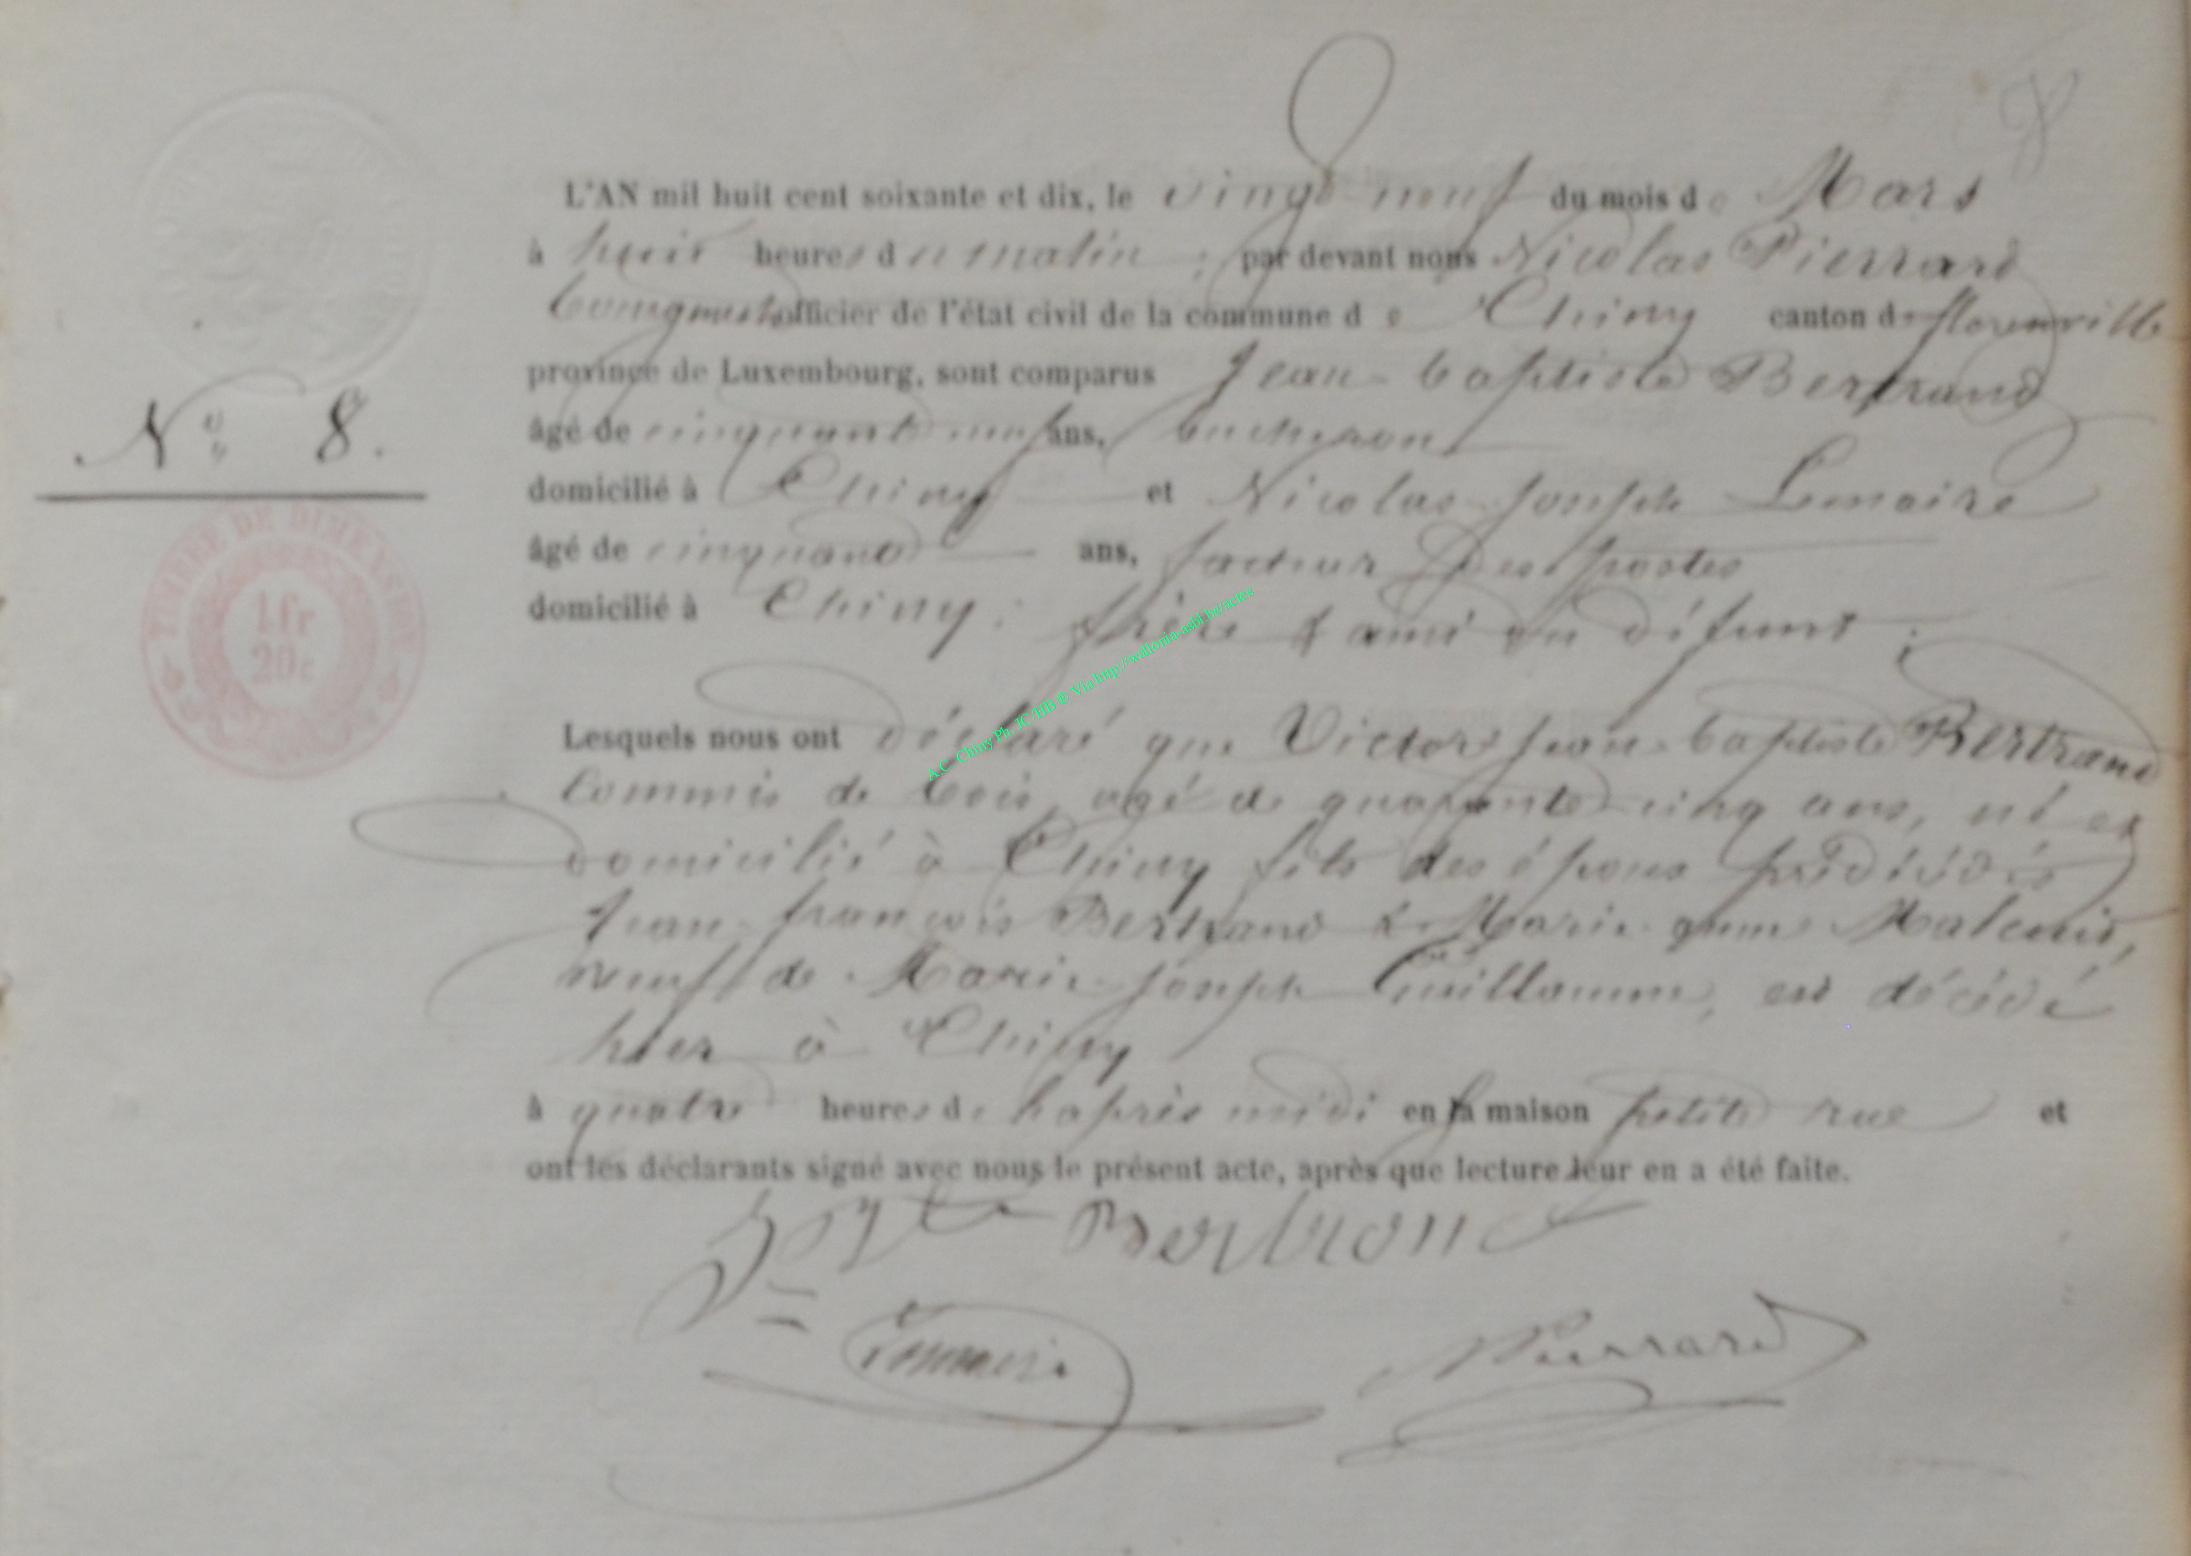 8
L'AN mil huit cent soixante et dix, le vingt neuf du mois de Mars
à huit heures du matin ; par devant nous Nicolas Pierrard
Bourgmestre officier de l'état civil de la commune de Chiny canton de florenville
province de Luxembourg, sont comparus Jean-baptiste Bertrand
N° 8.
âgé de cinquante neuf ans, bucheron
domicilié à Chiny et Nicolas-joseph Lemaire
âgé de cinquante ans, facteur des postes
domicilié à Chiny ; frère & ami du défunt ;
TIMBRE DE DIMENSION
1 fr
20 c
Lesquels nous ont déclaré que Victor jean-baptiste Bertrand
commis de bois, agé de quarante cinq ans, né et
domicilié à Chiny fils des époux prédécédés
Jean-françois Bertrand & Marie-jeanne
veuf de Marie-joseph Guillaume, est décédé
hier à Chiny
à quatre heures de l'après midi en sa maison petite rue et
ont les déclarants signé avec nous le présent acte, après que lecture leur en a été faite.
Bertrand
Lemaire
NPierrard
A.C. Chiny Ph. JC/HB © Via http://wallonia-asbl.be/actes